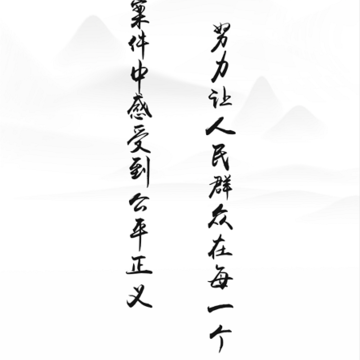 努力让人民群众在每一个
案件中感受到公平正义